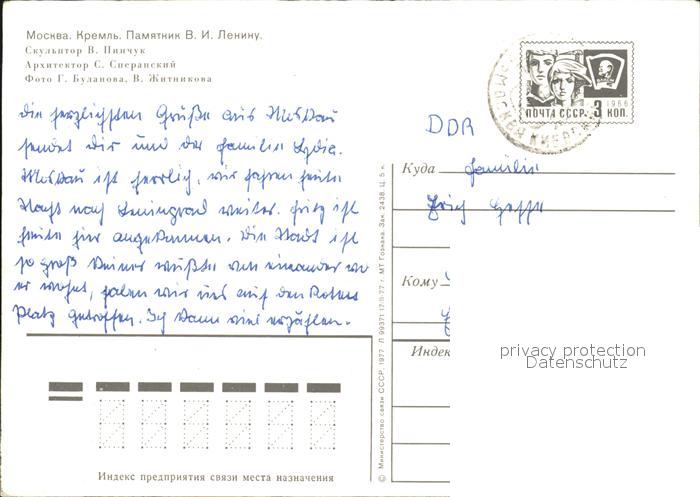 Москва. Кремль. Памятник В. И. Ленину.
Скульптор В. Пинчук
Архитектор С. Сперанский
Фото Г. Буланова, В. Житникова
die herzlichsten Grüße aus Moskau
sendet dir und der Familie Lydia.
Moskau ist herrlich, wir fahren heute
Nacht nach Leningrad weiter. Fritz ist
heute hier angekommen. Die Stadt ist
so groß keiner wußte von einander wo
er wohnt, haben wir uns auf den Roten
Platz getroffen. Ich kann viel erzählen.
Индекс предприятия связи места назначения
© Министерство связи СССР. 1977 Л 99371 17/II-77 г. МТ Гознака. Зак. 2438. Ц. 5 к.
1966
ПОЧТА СССР 3 КОП.
МОСКВА
DDR
Куда Familie
Erich
Кому
Индекс
privacy protection
Datenschutz